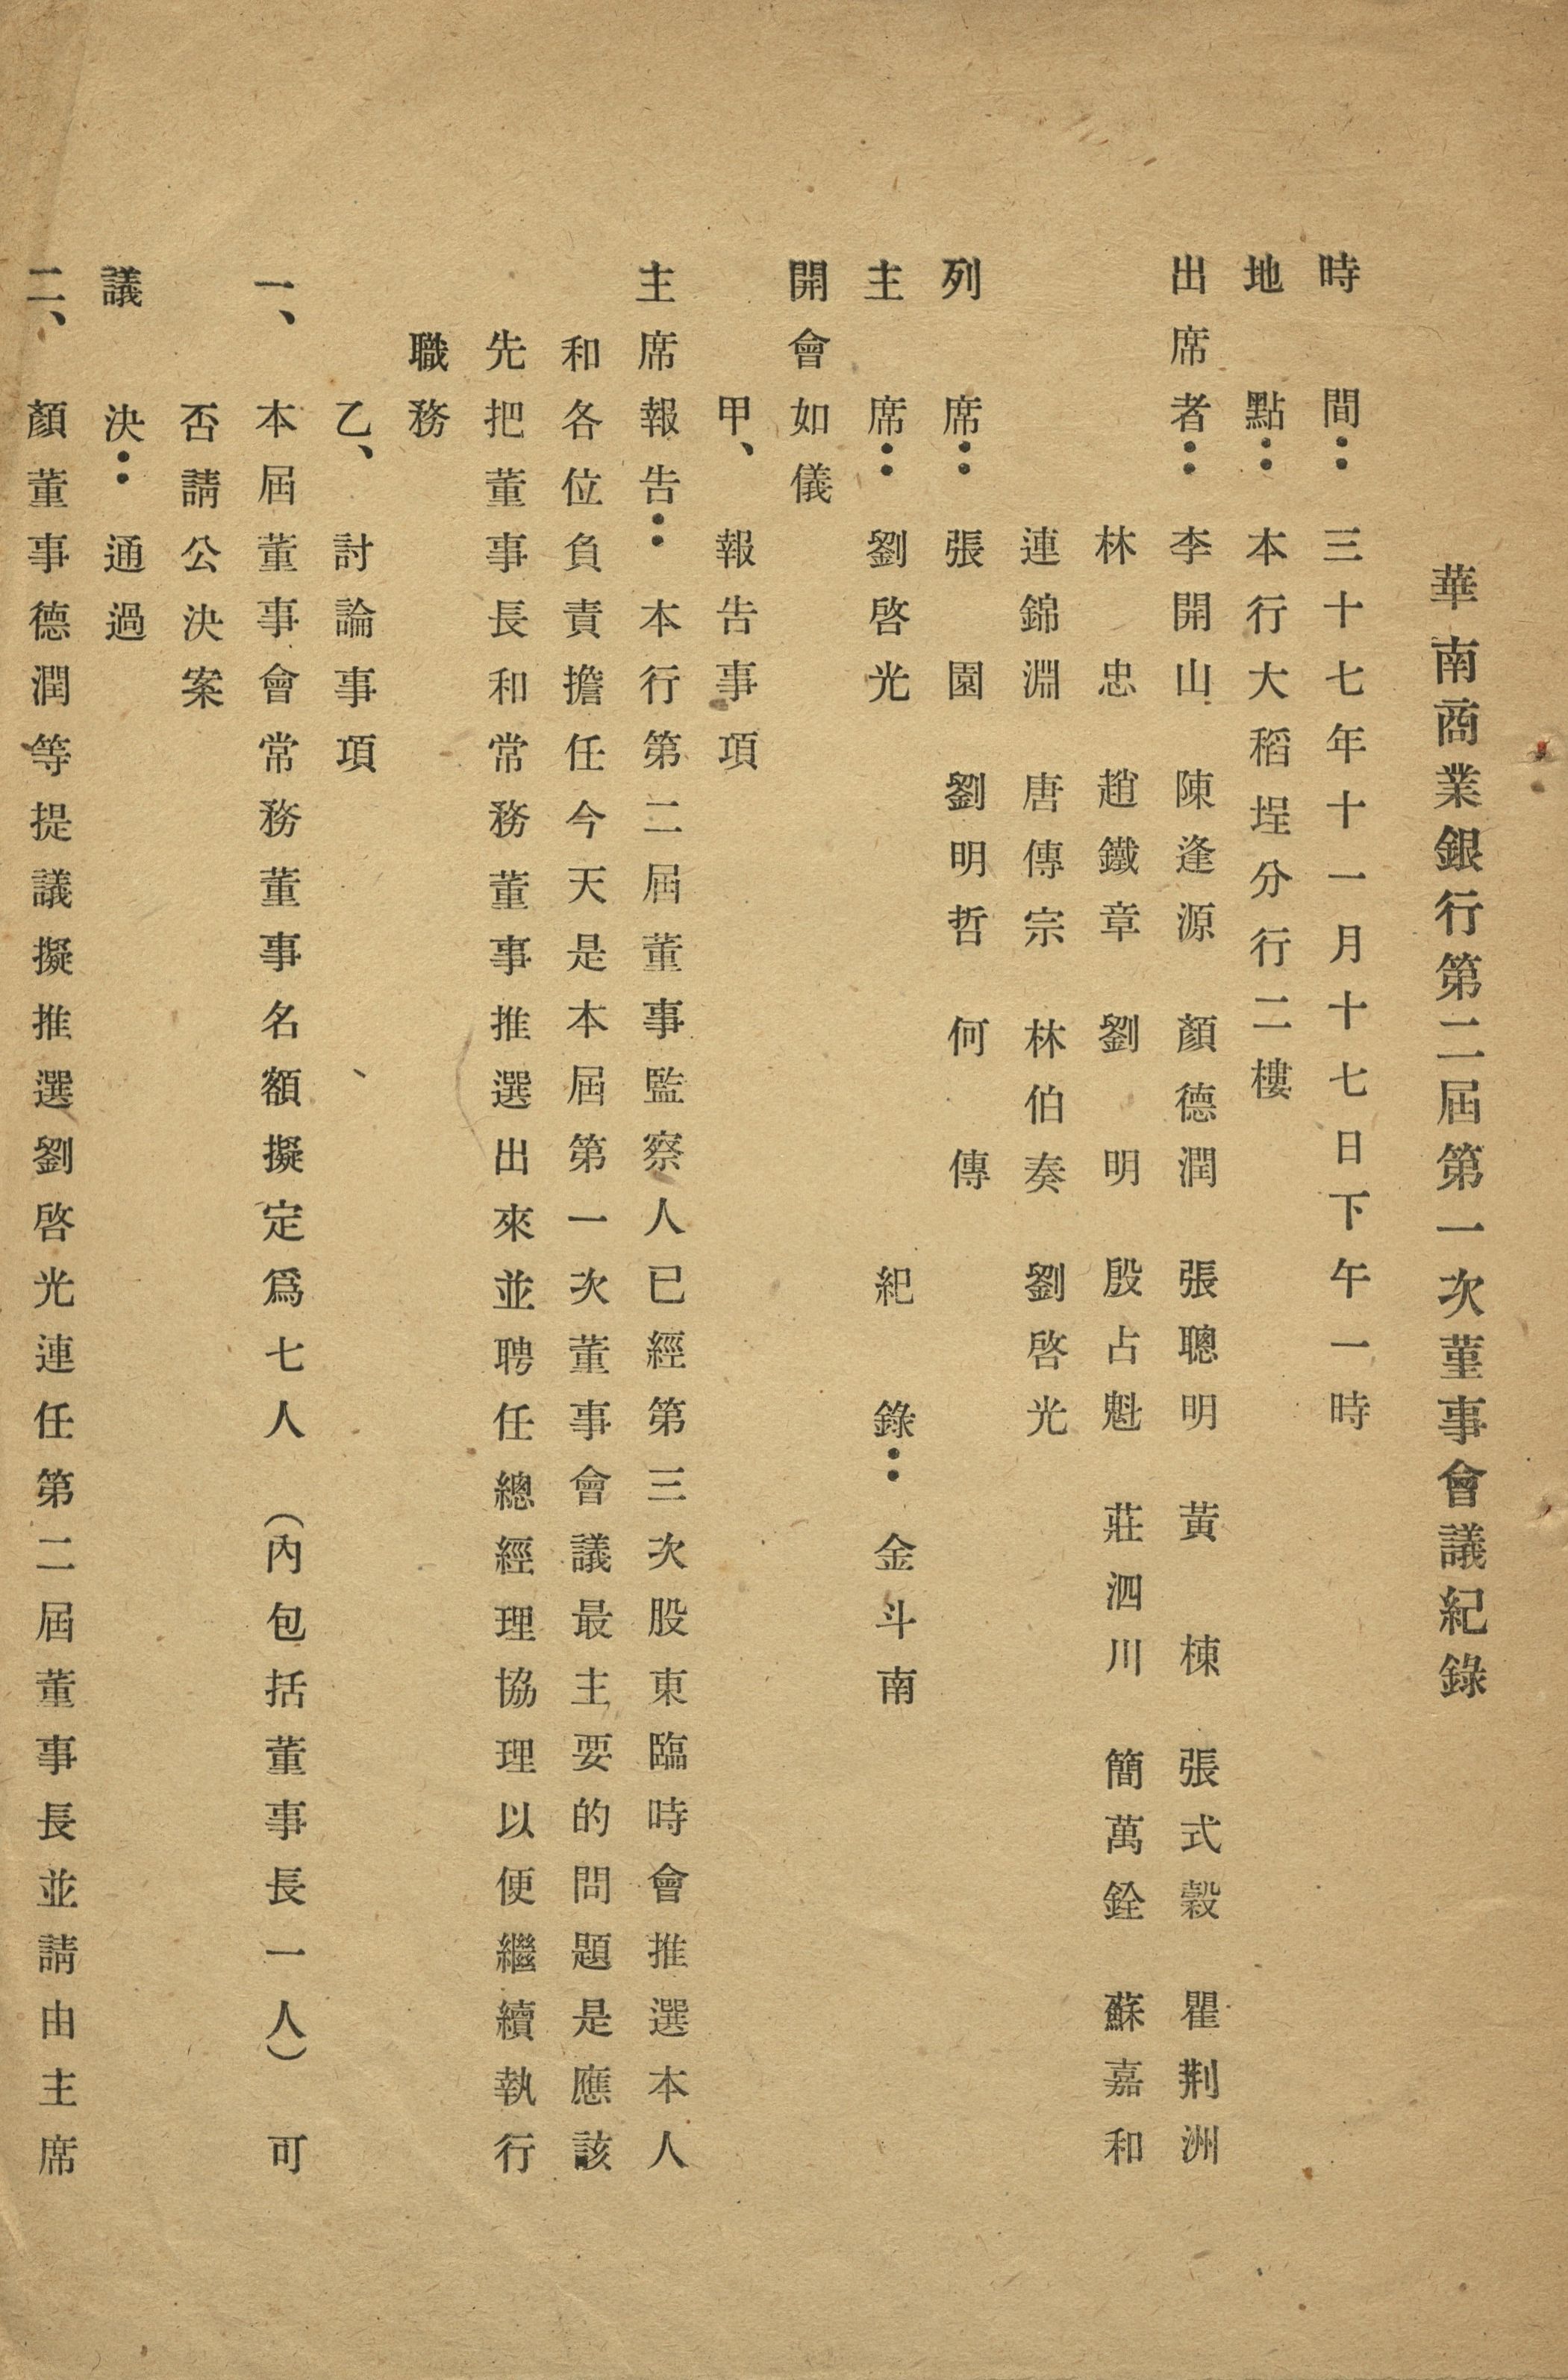 華南商業銀行第二屆第一次董事會議紀錄
時　間：三十七年十一月十七日下午一時
地　點：本行大稻埕分行二樓
出席者：李開山　陳逢源　顏德潤　張聰明　黃　棟　張式穀　瞿荆洲
林　忠　趙鐵章　劉　明　殷占魁　莊泗川　簡萬銓　蘇嘉和
連錦淵　唐傳宗　林伯奏　劉啓光
列　席：張　園　劉明哲　何　傳
主　席：劉啓光　紀　錄：金斗南
開會如儀
甲、報告事項
主席報告：本行第二屆董事監察人已經第三次股東臨時會推選本人
和各位負責擔任今天是本屆第一次董事會議最主要的問題是應該
先把董事長和常務董事推選出來並聘任總經理協理以便繼續執行
職務
乙、討論事項
一、本屆董事會常務董事名額擬定爲七人（內包括董事長一人）可
否請公決案
議　決：通過
二、顏董事德潤等提議擬推選劉啓光連任第二屆董事長並請由主席